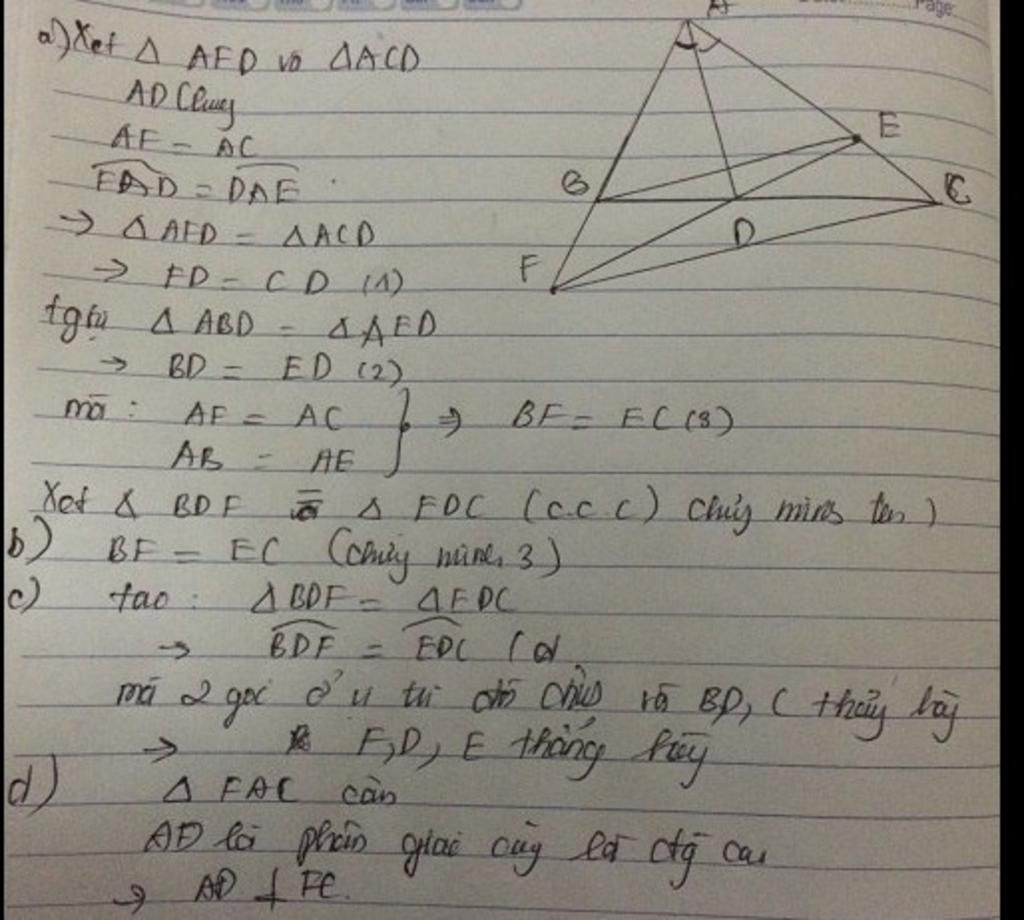 a) Xet Δ AFD và ΔACD
AD Chung
AF = AC
FAD = DAE
→ Δ AFD = ΔACD
→ FD = CD (1)
tg tự Δ ABD = ΔAED
→ BD = ED (2)
mà : AF = AC } ⇒ BF = EC (3)
AB = AE
Xet Δ BDF = Δ EDC (c.c.c) chứng minh trên )
b) BF = EC (chứng minh 3)
c) tao : ΔBDF = ΔEDC
→ BDF = EDC
mà 2 góc ở vị trí đối và BD, C thẳng hàng
→ F, D, E thẳng hàng
d) Δ FAC cân
AD là phân giác cũng là đg cao
→ AD ⊥ FC.
A
B
E
C
D
F
Page: